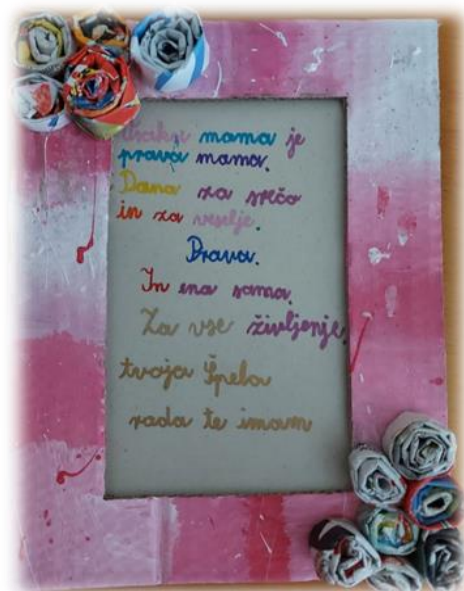 Vsaka mama je
prava mama.
Dana za srečo
in za veselje.
Prava.
In ena sama.
Za vse življenje.
tvoja Špela
rada te imam